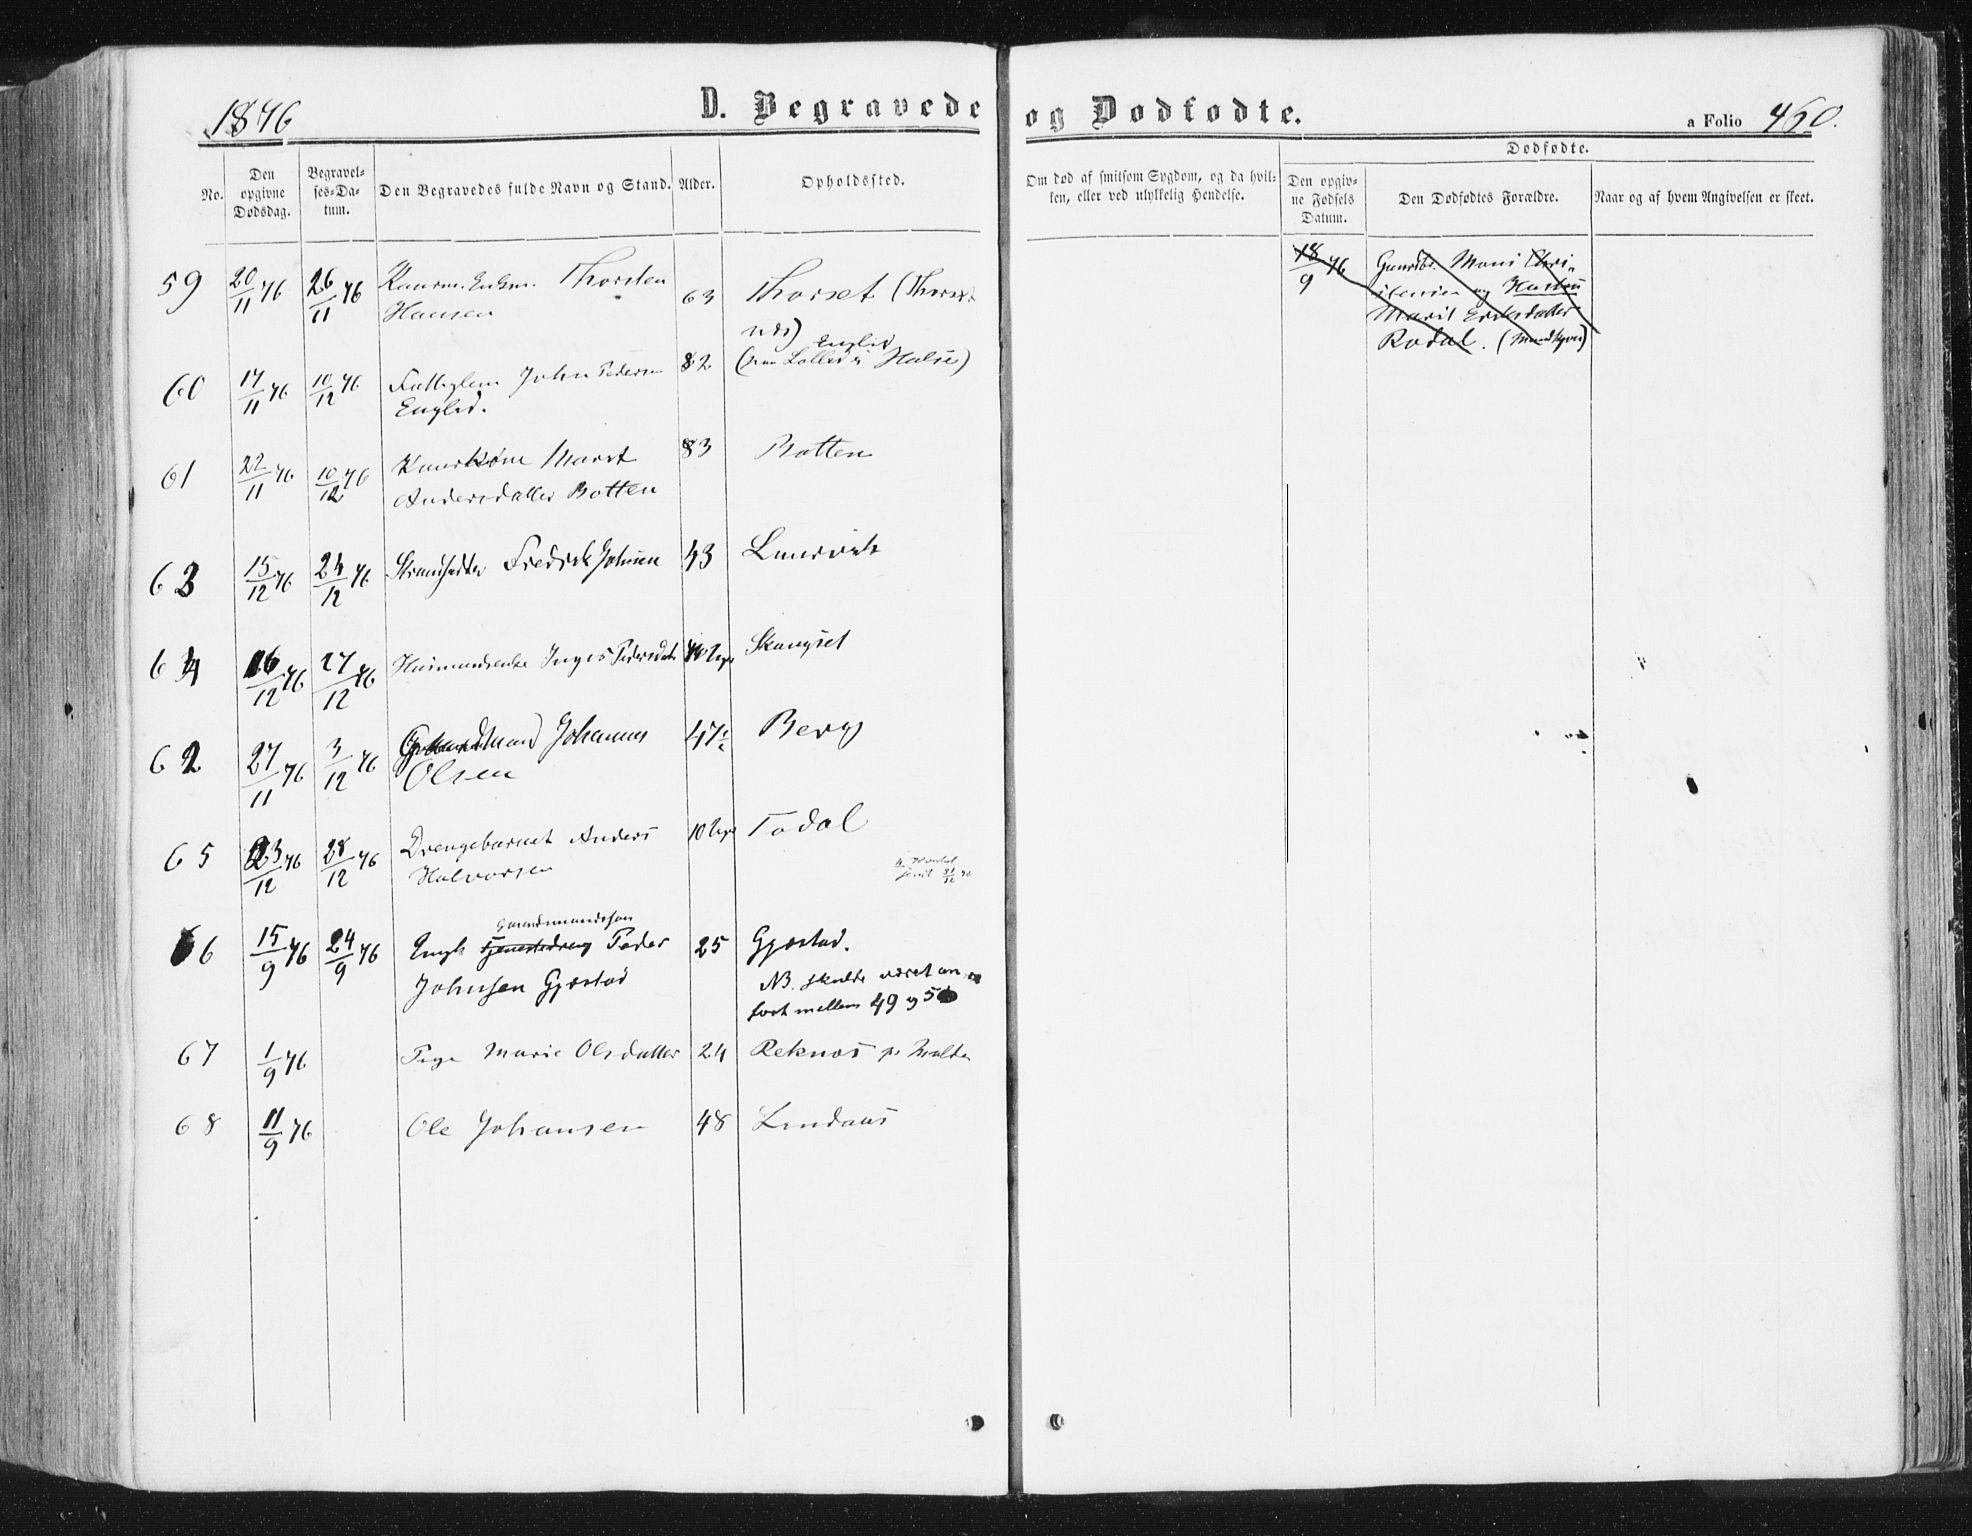 1876
D. Begravede og Dødfødte.
a Folio 460.
Dødfødte.
No.
Den opgivne Dødsdag.
Begravelses-Datum.
Den Begravedes fulde Navn og Stand.
Alder.
Opholdssted.
Om død af smitsom Sygdom, og da hvilken, eller ved ulykkelig Hendelse.
Den opgivne Fødsels Datum.
Den Dødfødtes Forældre.
Naar og af hvem Angivelsen er skeet.
59 20/11 76 26/11 76 Thorsten 63 Thorset
Hansen
60 17/11 76 10/12 76 John Pedersen 82 Halse)
Englid.
61 22/11 76 10/12 76 Marit 83 Botten
Andersdatter Botten
63 15/12 76 24/12 76 Fredrik Johnsen 43
64 16/12 76 27/12 76 Pedersdatter Skangset
62 27/11 76 3/12 76 Johannes 47½ Berg
Olsen
65 23/12 76 28/12 76 Drengebarnet Anders 10 Todal
Halvorsen
Gaardmandssøn
66 15/9 76 24/9 76 Ungk Tjenestedreng Peder 25 Gjøstad.
Johnsen Gjøstad NB. skulde været an
ført mellem 49 og 50
67 1/9 76 Pige Marie Olsdatter 24 Reknæs pr Molde
68 11/9 76 Ole Johansen 48
18/9 76 Gaardbr. Mons Chri-
stensen og Hustru
Marit Ericksdatter
Rodal.